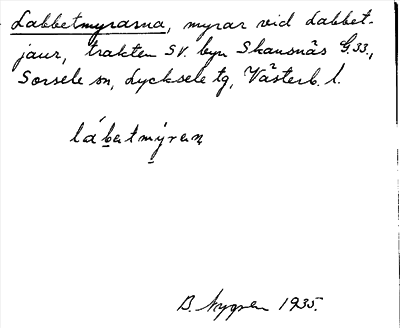 Labbetmyrarna, myrar vid Labbet-
jaur, trakten SV. byn Skansnäs G.33.,
Sorsele sn, Lycksele tg, Västerb. l.
lábetmýran
B. Nygren 1935.